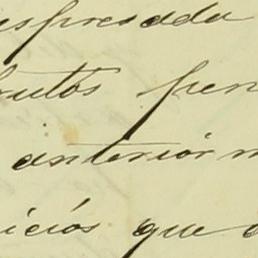 espresada
frutos pen
anterior m
icios que